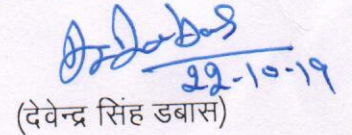 22-10-19
(देवेन्द्र सिंह डबास)